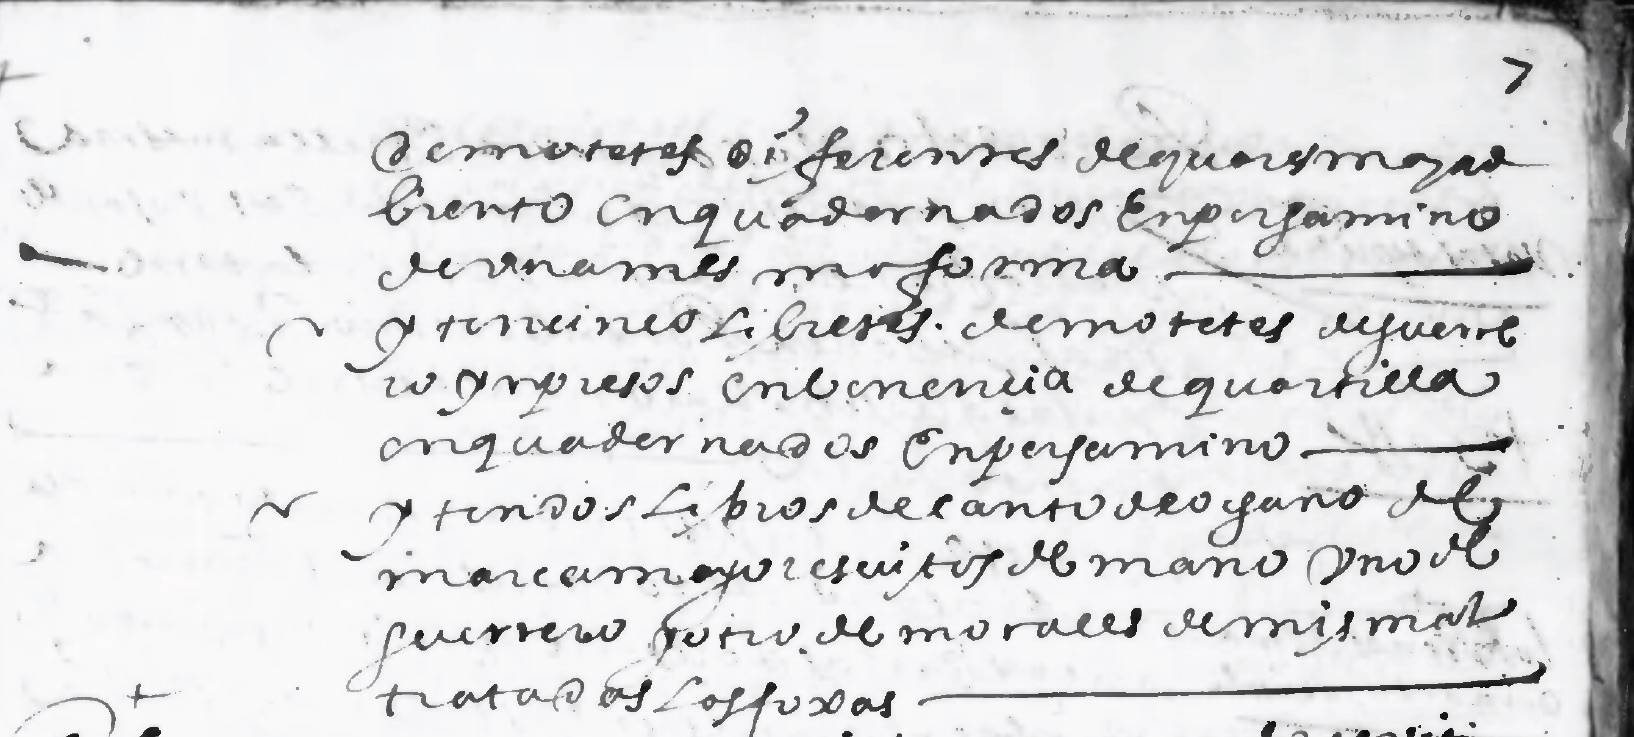 7
de motetes diferentes de quaresma y ad
biento enquadernados En pergamino
de una mesma forma
yten cinco libretes de motetes de guerre
ro ynpresos en benencia de quartilla
enquadernados En pergamino
yten dos libros de canto de organo de
marca mayor escritos de mano Uno de
guerrero y otro de morales de mis mal
tratados las foxas